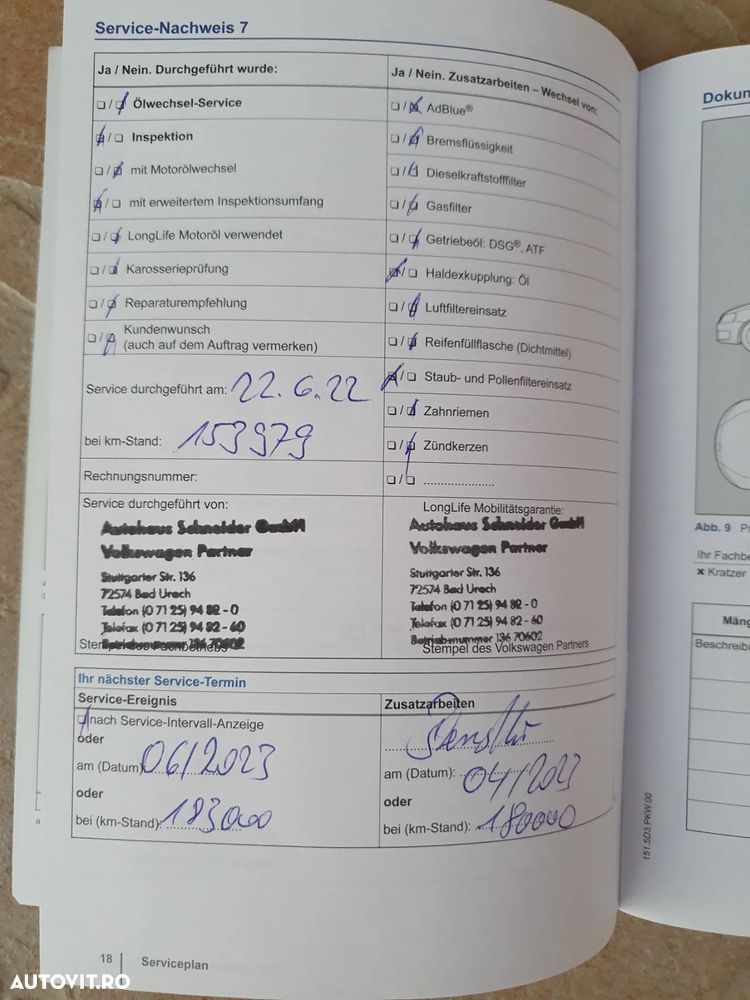 Service-Nachweis 7
Ja / Nein. Durchgeführt wurde:
❑ / ❑ Ölwechsel-Service
❑ / ❑ Inspektion
❑ / ❑ mit Motorölwechsel
❑ / ❑ mit erweitertem Inspektionsumfang
❑ / ❑ LongLife Motoröl verwendet
❑ / ❑ Karosserieprüfung
❑ / ❑ Reparaturempfehlung
❑ / ❑ Kundenwunsch
(auch auf dem Auftrag vermerken)
Service durchgeführt am: 22.6.22
bei km-Stand: 153979
Rechnungsnummer:
Ja / Nein. Zusatzarbeiten – Wechsel von:
❑ / ❑ AdBlue®
❑ / ❑ Bremsflüssigkeit
❑ / ❑ Dieselkraftstofffilter
❑ / ❑ Gasfilter
❑ / ❑ Getriebeöl: DSG®, ATF
❑ / ❑ Haldexkupplung: Öl
❑ / ❑ Luftfiltereinsatz
❑ / ❑ Reifenfüllflasche (Dichtmittel)
❑ / ❑ Staub- und Pollenfiltereinsatz
❑ / ❑ Zahnriemen
❑ / ❑ Zündkerzen
❑ / ❑ .....................
Service durchgeführt von:
Autohaus Schneider GmbH
Volkswagen Partner
Stuttgarter Str. 136
72574 Bad Urach
Telefon (0 71 25) 94 82 - 0
Telefax (0 71 25) 94 82 - 60
Betriebsnummer 136 70602
LongLife Mobilitätsgarantie:
Autohaus Schneider GmbH
Volkswagen Partner
Stuttgarter Str. 136
72574 Bad Urach
Telefon (0 71 25) 94 82 - 0
Telefax (0 71 25) 94 82 - 60
Betriebsnummer 136 70602
Stempel des Volkswagen Partners
Ihr nächster Service-Termin
Service-Ereignis
❑ nach Service-Intervall-Anzeige
oder
am (Datum): 06/2023
oder
bei (km-Stand): 183000
Zusatzarbeiten
am (Datum): 04/2023
oder
bei (km-Stand): 180000
18
Serviceplan
151.5D3.PKW.00
Dokum
Abb. 9
Ihr Fachbe
× Kratzer
Mäng
Beschreibe
AUTOVIT.RO